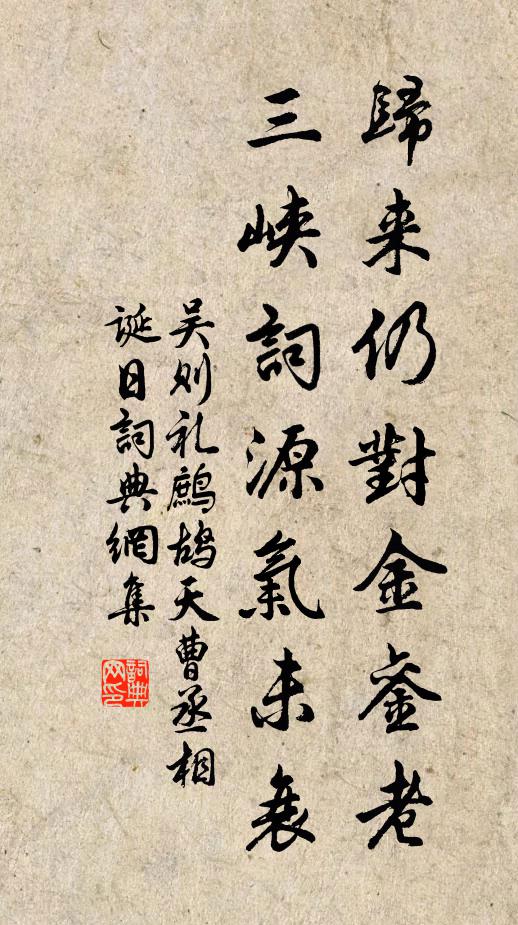 歸来仍對金鑾老
三峽詞源氣未衰
吴则礼鷓鴣天曹丞相
誕日詞典網集
詞典网印